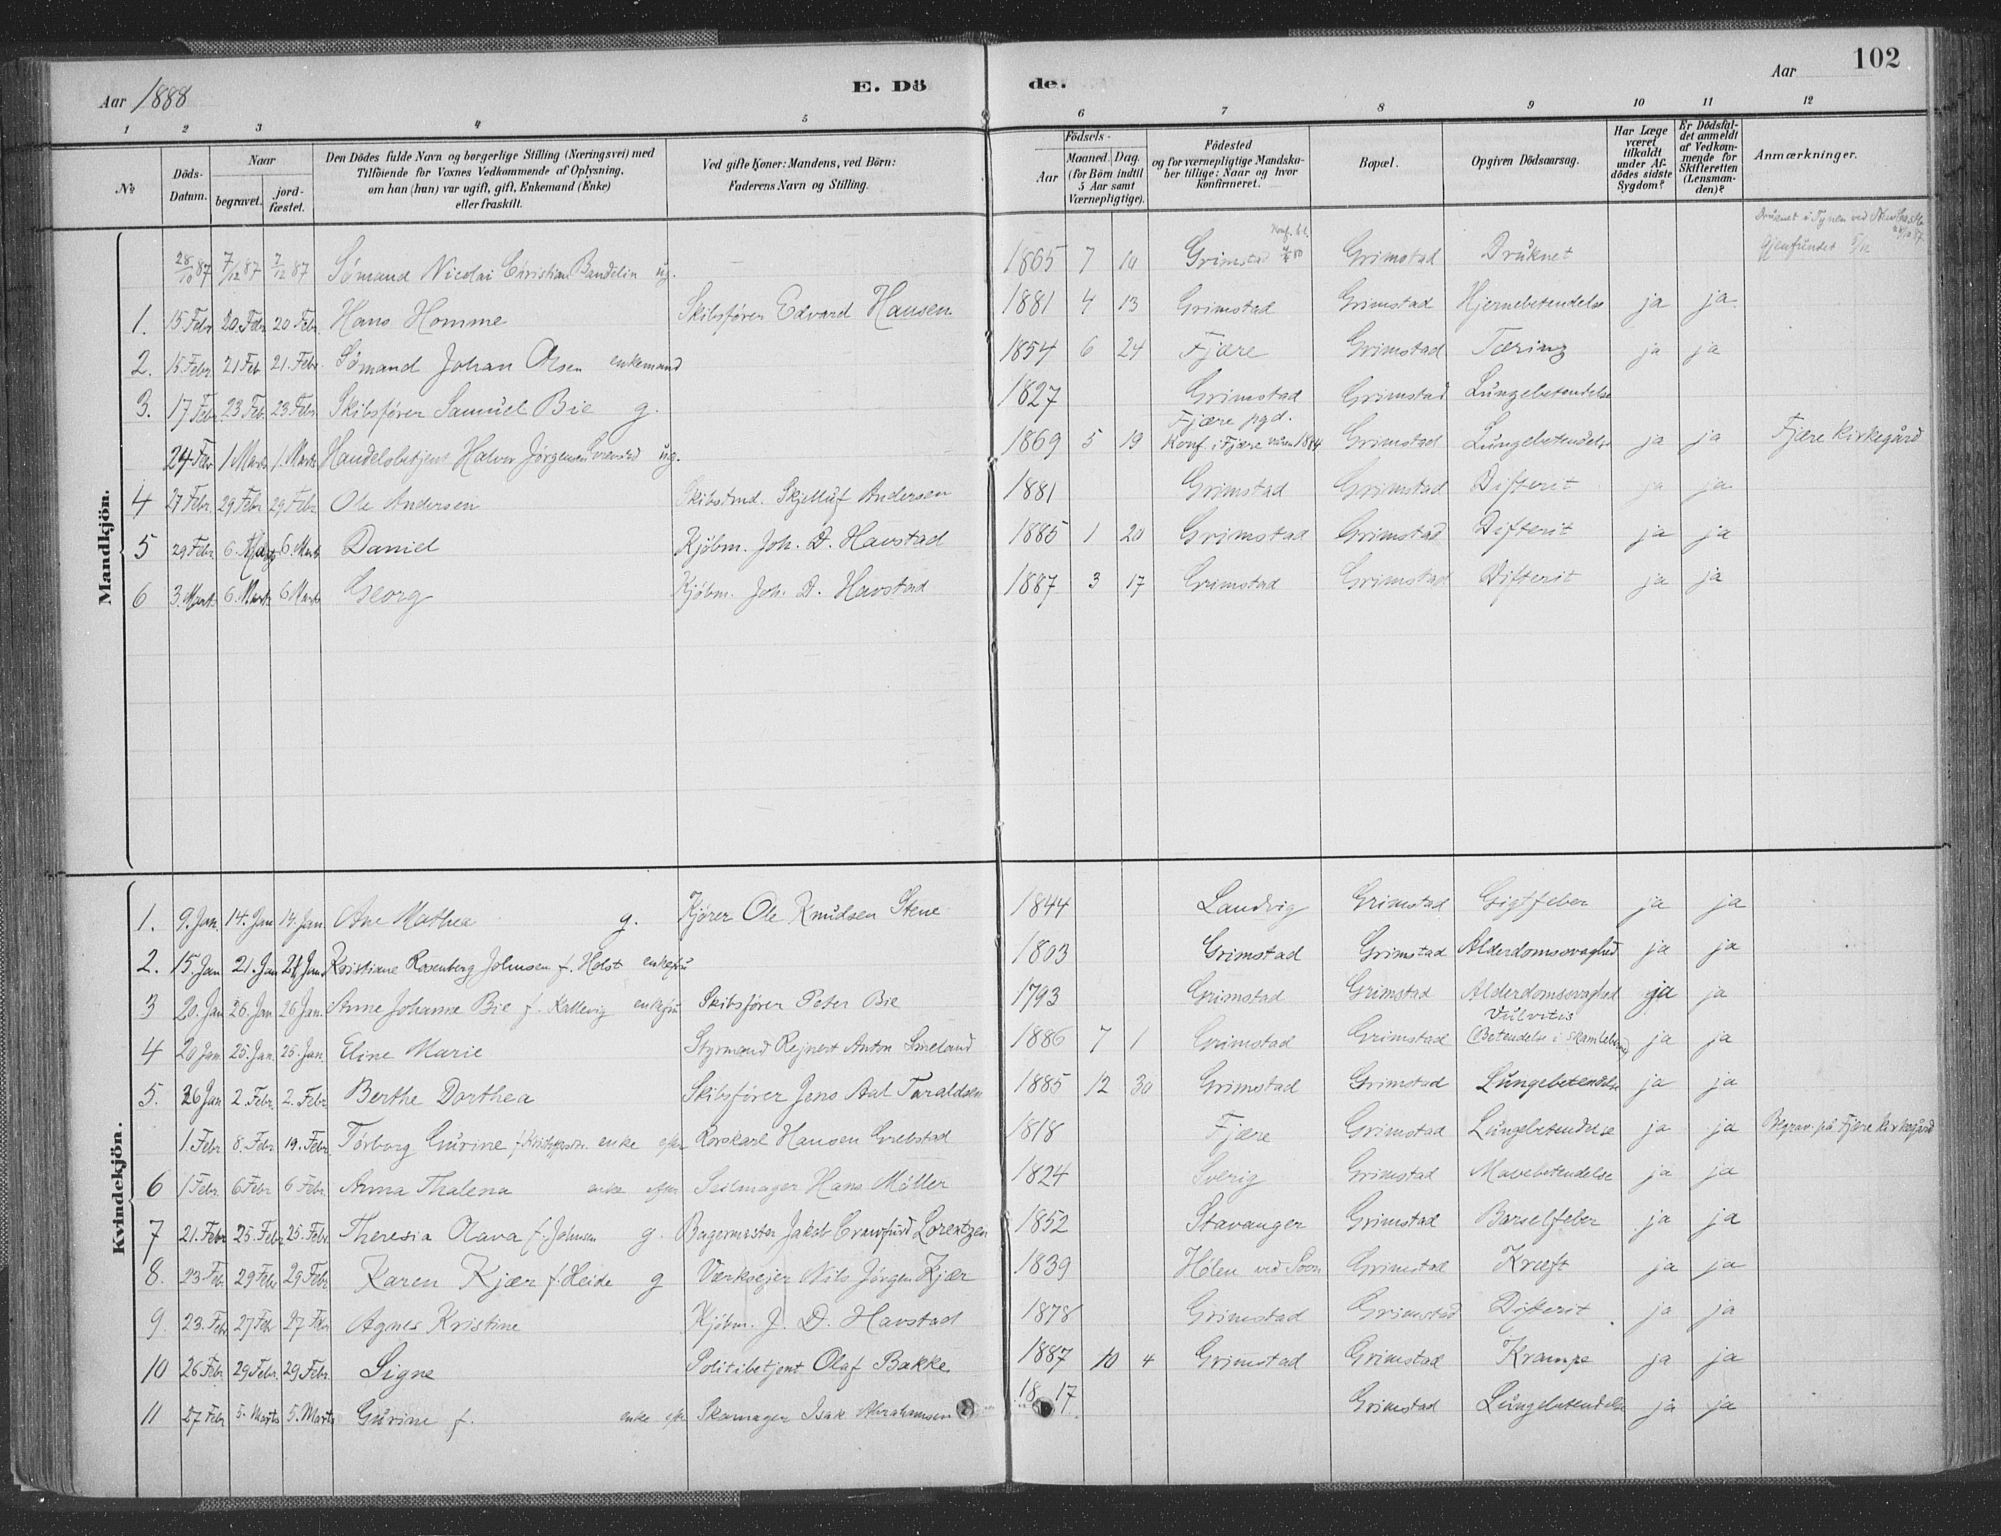 102
Aar 1888
E. Dö de.
Aar
1 2 3 4 5 6 7 8 9 10 11 12
No
Döds-Datum.
Naar begravet. jord-fæstet.
Den Dödes fulde Navn og borgerlige Stilling (Næringsvei) med Tilföiende for Voxnes Vedkommende af Oplysning, om han (hun) var ugift, gift, Enkemand (Enke) eller fraskilt.
Ved gifte Koner: Mandens, ved Börn: Faderens Navn og Stilling.
Födsels- Aar Maaned. Dag. (for Börn indtil 5 Aar samt Værnepligtige).
Födested og for værnepligtige Mandskaber tillige: Naar og hvor konfirmeret.
Bopæl.
Opgiven Dödsaarsag.
Har Læge været tilkaldt under Afdödes sidste Sygdom?
Er Dödsfaldet anmeldt af Vedkommende for Skifteretten (Lensmanden)?
Anmærkninger.
Mandkjön.
28/10 87 7/12 87 7/12 87 Sømand Nicolai Christian Bandelin ug. — 1865 7 10 Grimstad Grimstad Druknet Gjenfundet 5/12
1. 15 Febr 20. Febr 20 Febr. Hans Homme Skibsfører Edvard Hansen 1881 4 13 Grimstad Grimstad Hjernebetendelse ja ja
2. 15 Febr 21 Feb 21. Febr. Sømand Johan Olsen enkemand 1854 6 24 Fjære Grimstad Tæring ja ja
3. 17 Febr 23. Feb. 23 Febr. Skibsfører Samuel Bie g. 1827 Grimstad Grimstad Lungebetendelse
24 Febr 1 Marts 1. Marts Handelsbetjent Halvor Jørgensen ug. 1869 5 19 Fjære pgd. Konf. i Fjære 1884 Grimstad Lungebetendelse ja ja Fjære Kirkegård
4 27 Febr. 29 Febr 29 Febr. Ole Andersen Skibstmd. Andersen 1881 Grimstad Grimstad Difterit ja ja
5 29 Febr 6. Marts 6. Marts Daniel Kjøbm. Joh. D. Havstad 1885 1 20 Grimstad Grimstad Difterit ja ja
6 3. Marts 6. Marts 6 Marts Georg Kjøbm. Joh. D. Havstad 1887 3 17 Grimstad Grimstad Difterit ja ja
Kvindekjön.
1. 9. Jan. 14. Jan 14. Jan. Ane Mathea g. Kjører Ole Knudsen Stene 1844 Landvig Grimstad Gigtfeber ja ja
2. 15. Jan 21. Jan 21. Jan Kristiane Rosenberg Johnsen f. Holst enkefru 1803 Grimstad Grimstad Alderdomssvaghed ja ja
3 20. Jan 26. Jan 26 Jan. Anne Johanne Bie f. Kallevig enkefru Skibsfører Peter Bie 1793 Grimstad Grimstad Alderdomssvaghed ja ja
4 20 Jan 25. Jan. 25. Jan Eline Marie Styrmand Rejnert Anton Smeland 1886 7 1 Grimstad Grimstad Vulvitis ja ja
5. 26 Jan 2. Febr. 2. Febr Berthe Dorthea Skibsfører Jens Aal Taraldsen 1885 12 30 Grimstad Grimstad Lungebetendelse ja ja
1. Febr 8. Febr 19. Febr. Torborg Gurine enke efter Hansen Grebstad 1818 Fjære Grimstad Lungebetendelse ja ja Begrav. på Fjære Kirkegård
6 1 Febr. 6 Febr 6 Febr. Anna Thalena enke efter Seilmager Hans Møller 1824 Sverig Grimstad Mavebetendelse ja ja
7 21. Febr 25. Febr 25. Febr. Theresia Olava f. Johnsen g. Bagermester Jakob Crawfurd Lorentzen 1852 Stavanger Grimstad Barselfeber ja ja
8. 23 Febr 29 Febr 29 Febr. Karen Kjær f. Heide g Værksejer Nils Jørgen Kjær 1839 Hølen ved Soon Grimstad Kræft ja ja
9. 23. Febr 27 Febr 27 Febr Agnes Kristine Kjøbm. J. D. Havstad 1878 Grimstad Grimstad Difterit ja ja
10 26 Febr 29 Febr. 29 Febr. Signe Politibetjent Olaf Bakke 1887 10 4 Grimstad Grimstad Krampe ja ja
11 27 Febr 5. Marts 5. Marts Gurine f. enke efter Skomager Isak Abrahamsen 1817 Grimstad Lungebetendelse ja ja